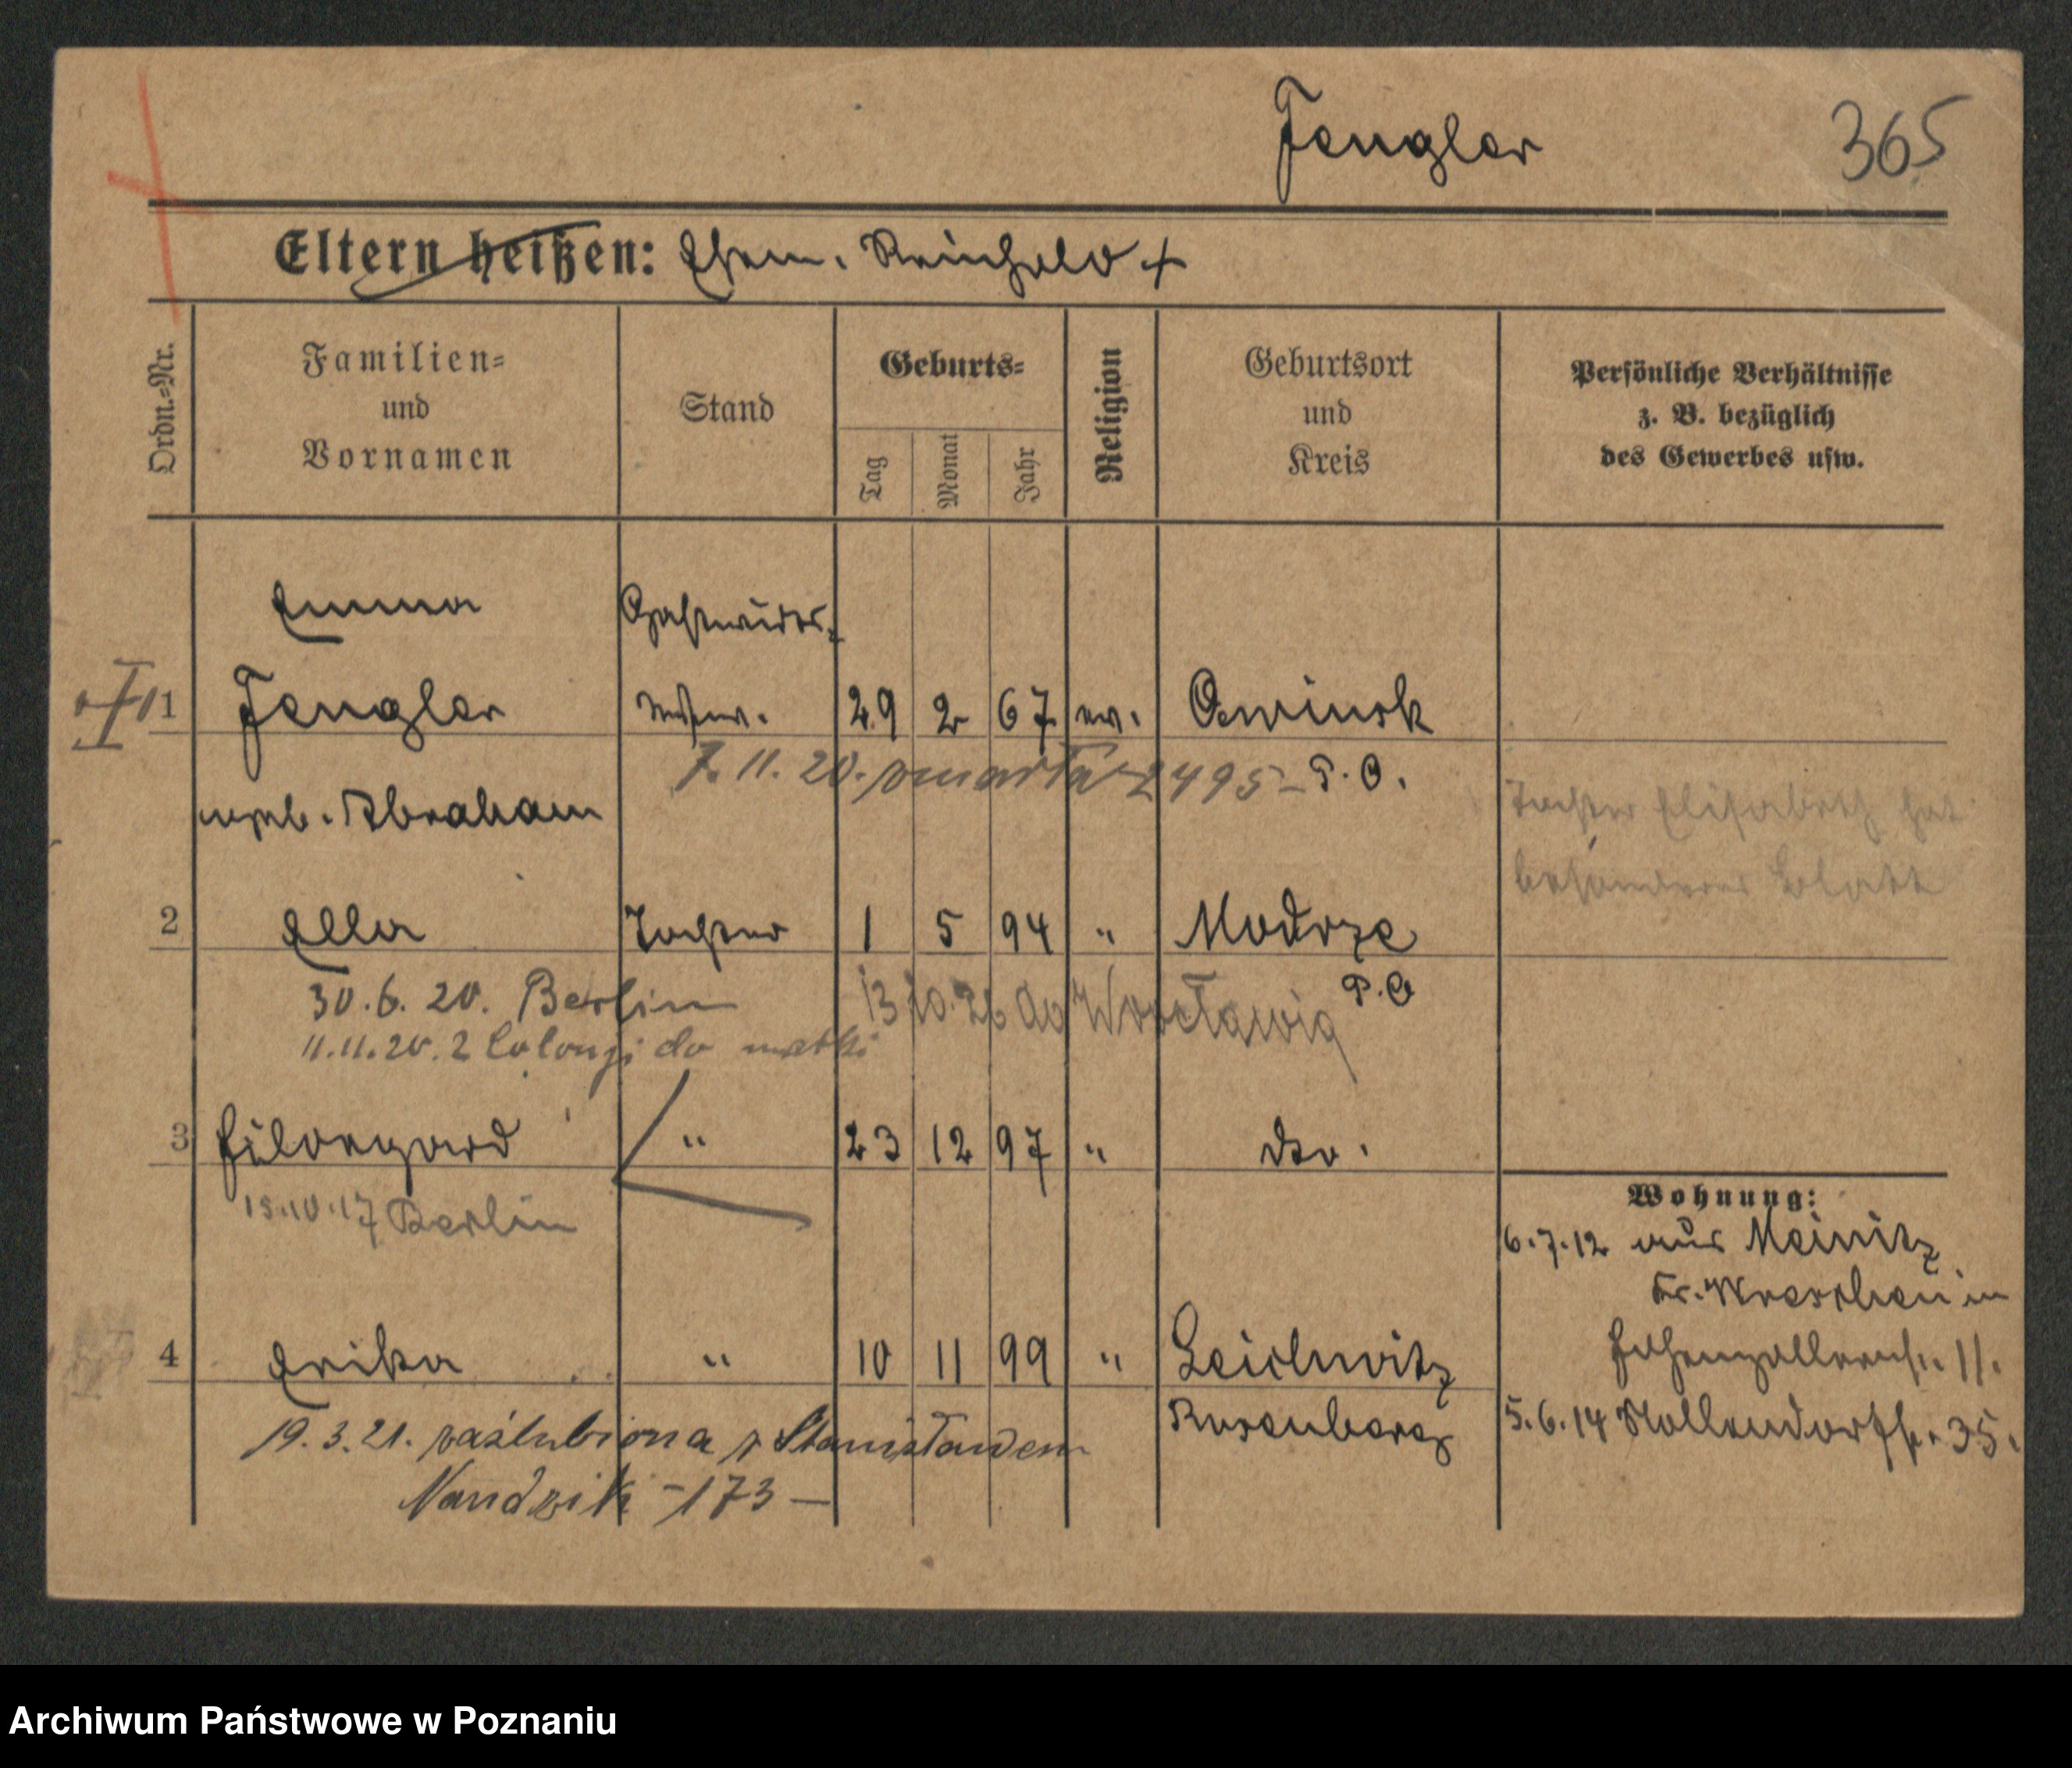 Fengler 365
Eltern heißen: Ehem. Reinhold +
Ordn.=Nr.
Familien=
und
Vornamen
Stand
Geburts=
Tag
Monat
Jahr
Religion
Geburtsort
und
Kreis
Persönliche Verhältnisse
z. B. bezüglich
des Gewerbes usw.
Emma Gastwirts-
1 Fengler Wtw. 29 2 67 ev. Owinsk
7. 11. 20. zmarła - 2495 - P. O.
geb. Abraham
Tochter Elisabeth hat
besonderes Blatt
2 Ella Tochter 1 5 94 " Modrze
P. O
30. 6. 20. Berlin 13 10. 26 do Wrocławia
11. 11. 20. z do matki
3 Hildegard " 23 12 97 " dto.
15. 10. 17 Berlin
Wohnung:
6. 7. 12 aus Meinitz
Kr. Wreschen in
Hohenzollernstr. 11.
4 Erika " 10 11 99 " Leschwitz
Rosenberg
5. 6. 14 Nollendorfstr. 35.
19. 3. 21. zaślubiona z Stanisławem
Nandzik - 173 -
Archiwum Państwowe w Poznaniu